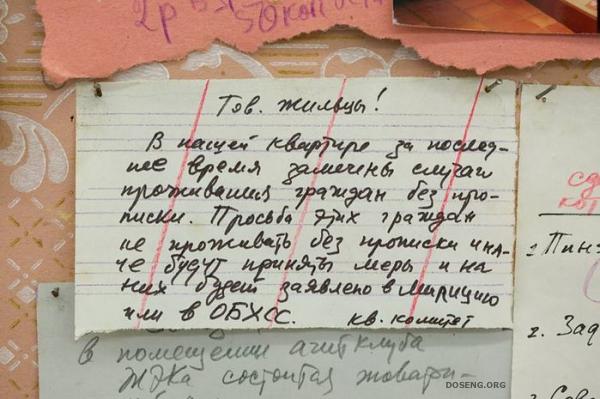 2р
50 коп
Тов. жильцы!
В нашей квартире за послед-
нее время замечены случаи
проживания граждан без про-
писки. Просьба этих граждан
не проживать без прописки ина-
че будут приняты меры и на
них будет заявлено в милицию
или в ОБХСС. кв. комитет
в помещении агитклуба
ЖЭКа состоится товари-
г. Зад
DOSENG.ORG